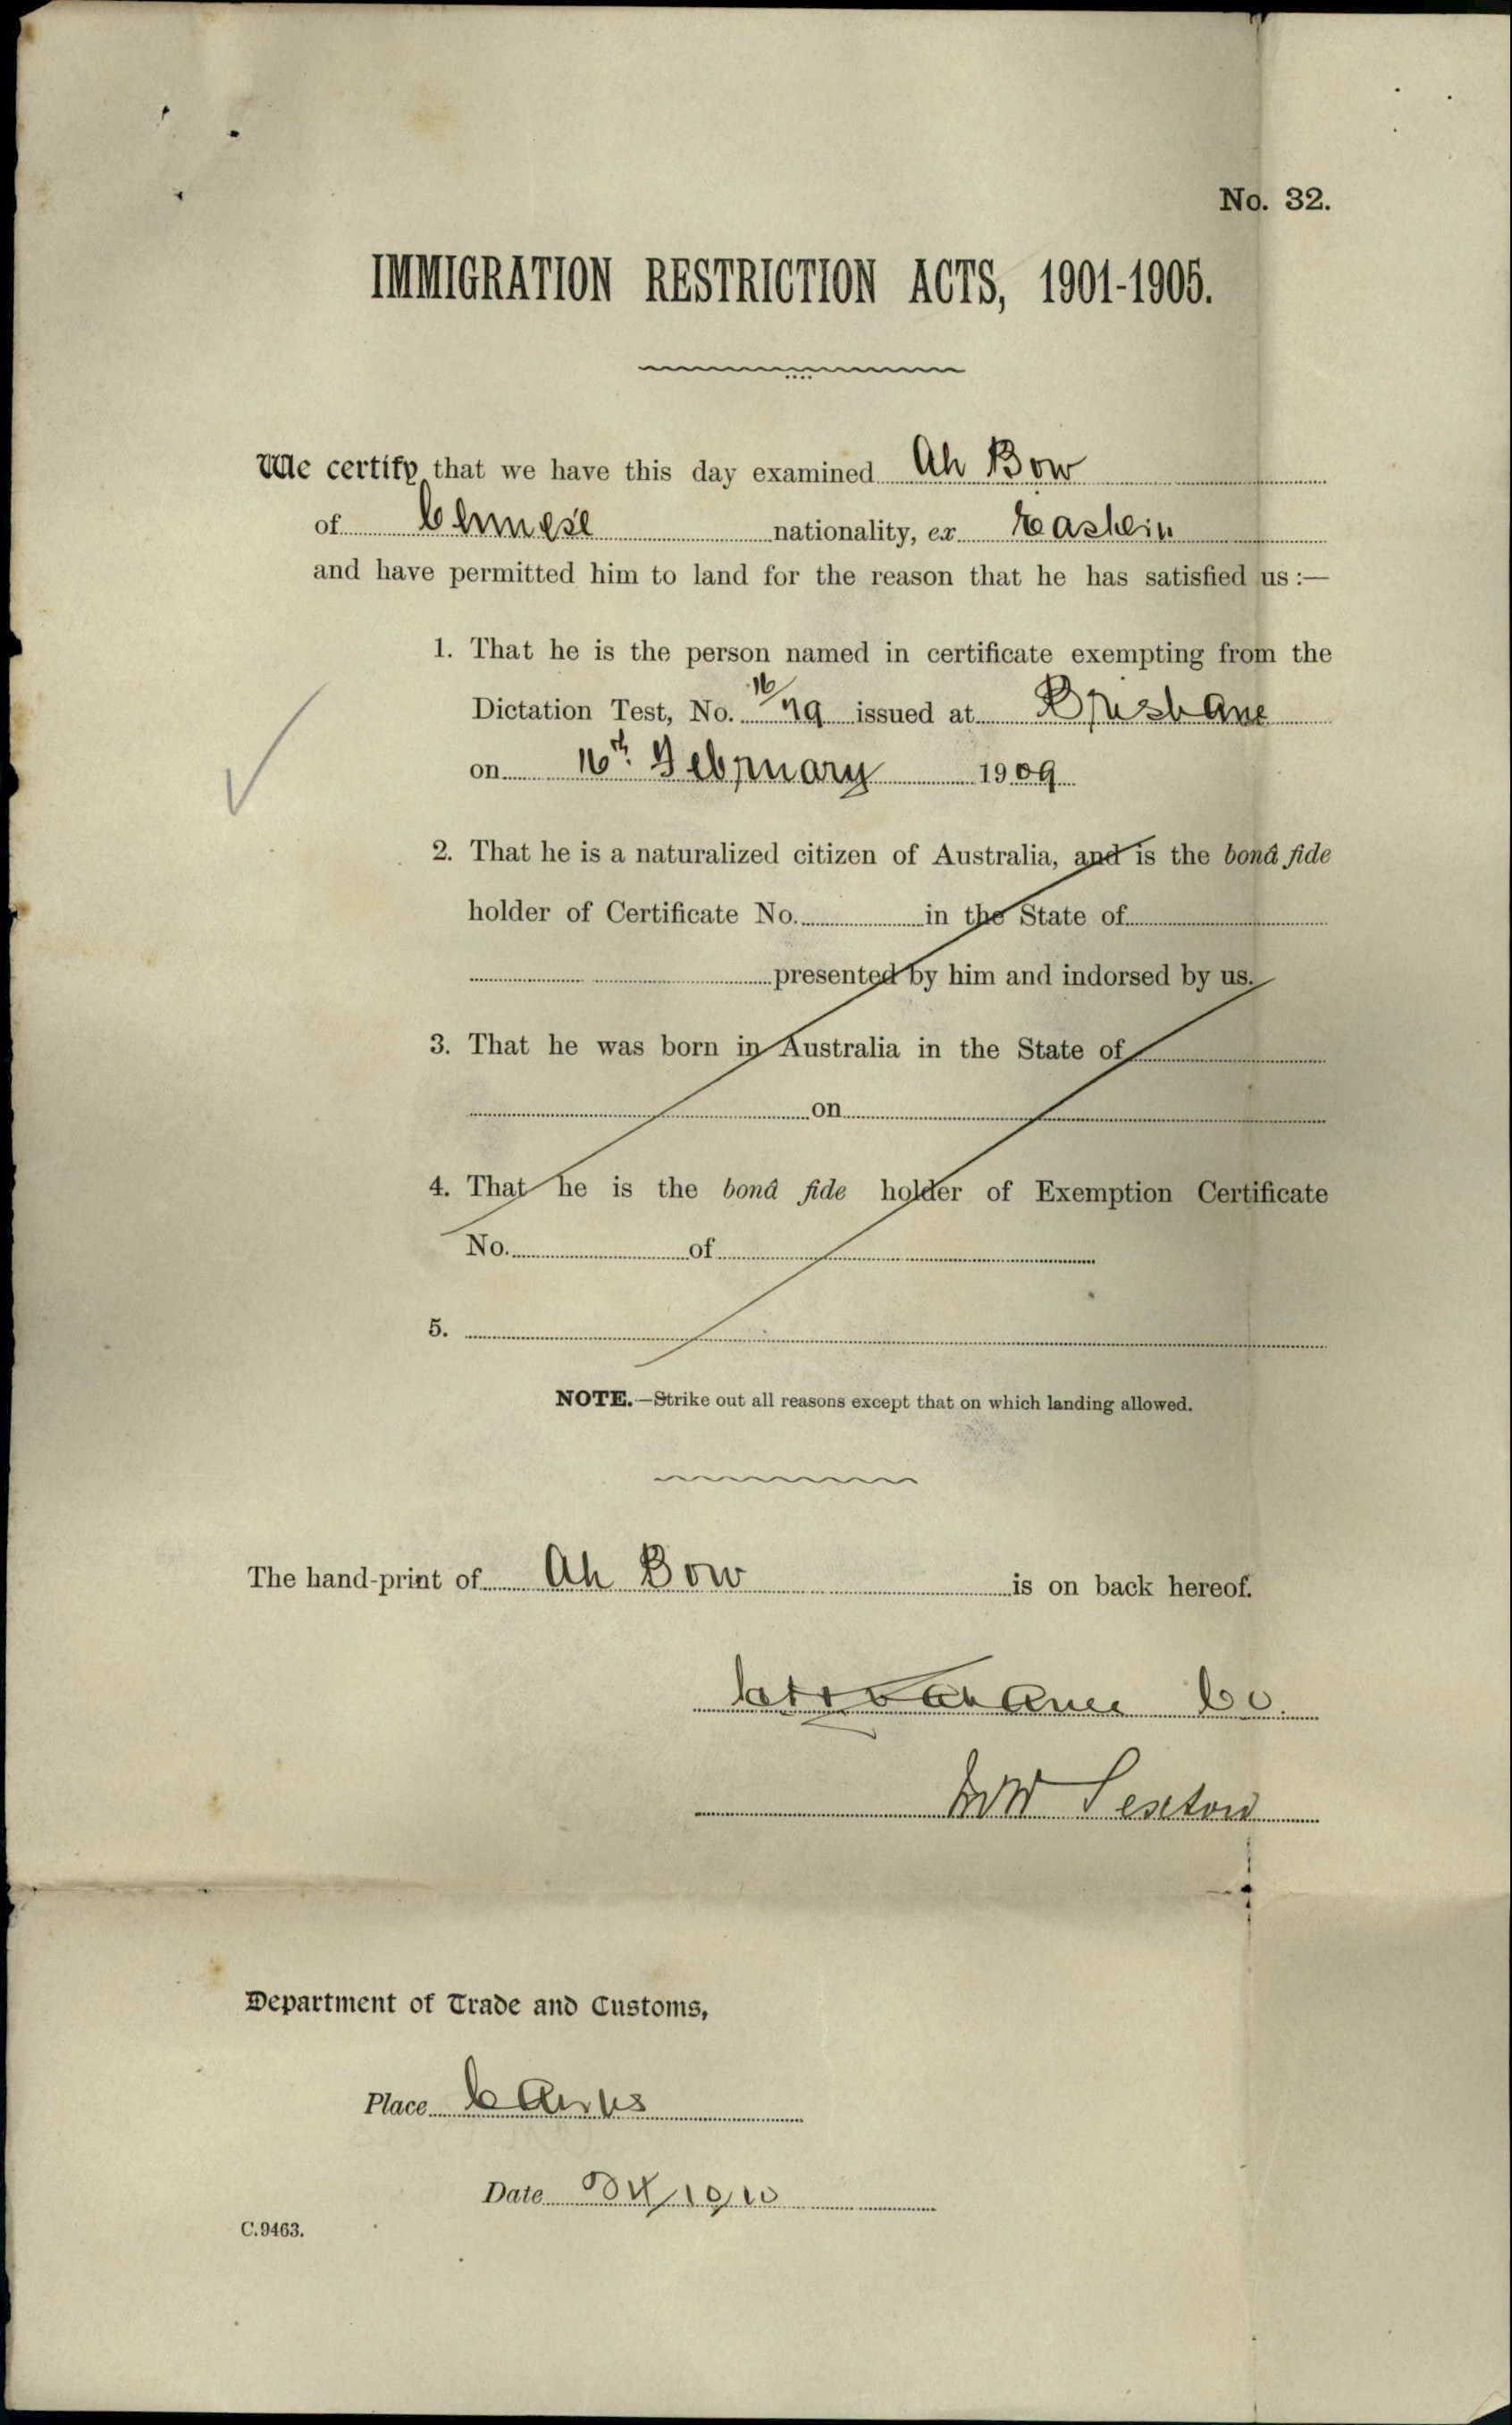 No. 32.
IMMIGRATION RESTRICTION ACTS, 1901-1905.
We certify that we have this day examined Ah Bow
of Chinese nationality, ex Eastern
and have permitted him to land for the reason that he has satisfied us :—
1. That he is the person named in certificate exempting from the
Dictation Test, No. 16/79 issued at Brisbane
on 16th. February 1909
2. That he is a naturalized citizen of Australia, and is the bonâ fide
holder of Certificate No. in the State of
presented by him and indorsed by us.
3. That he was born in Australia in the State of
on
4. That he is the bonâ fide holder of Exemption Certificate
No. of
5.
NOTE.—Strike out all reasons except that on which landing allowed.
The hand-print of Ah Bow is on back hereof.
Sexton
Department of Trade and Customs,
Place Cairns
Date /10/10
C.9463.